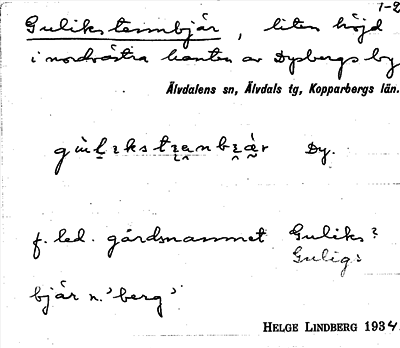 1-2
Gulikstennbjär, liten höjd
i nordvästra kanten av Dysbergs by
Älvdalens sn, Älvdals tg, Kopparbergs län.
Dy.
f. led. gårdsnamnet Guliks?
Gulig:
bjär n. 'berg'
HELGE LINDBERG 1934